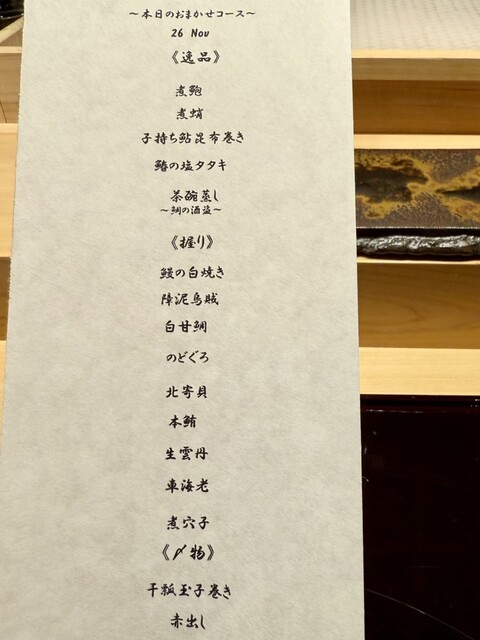 ～本日のおまかせコース～
26 Nov
《逸品》
煮鮑
煮蛸
子持ち鮎昆布巻き
鰆の塩タタキ
茶碗蒸し
～鯛の酒盗～
《握り》
鰻の白焼き
障泥烏賊
白甘鯛
のどぐろ
北寄貝
本鮪
生雲丹
車海老
煮穴子
《〆物》
干瓢玉子巻き
赤出し